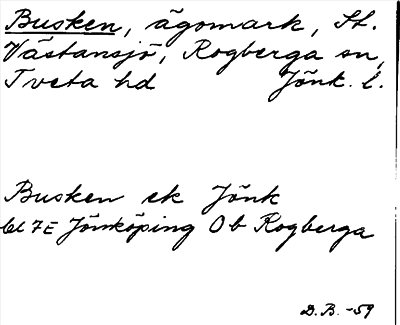 Busken, ägomark, St.
Västansjö, Rogberga sn,
Tveta hd Jönk. l.
Busken ek Jönk
bl 7E Jönköping Ob Rogberga
D.B. -59